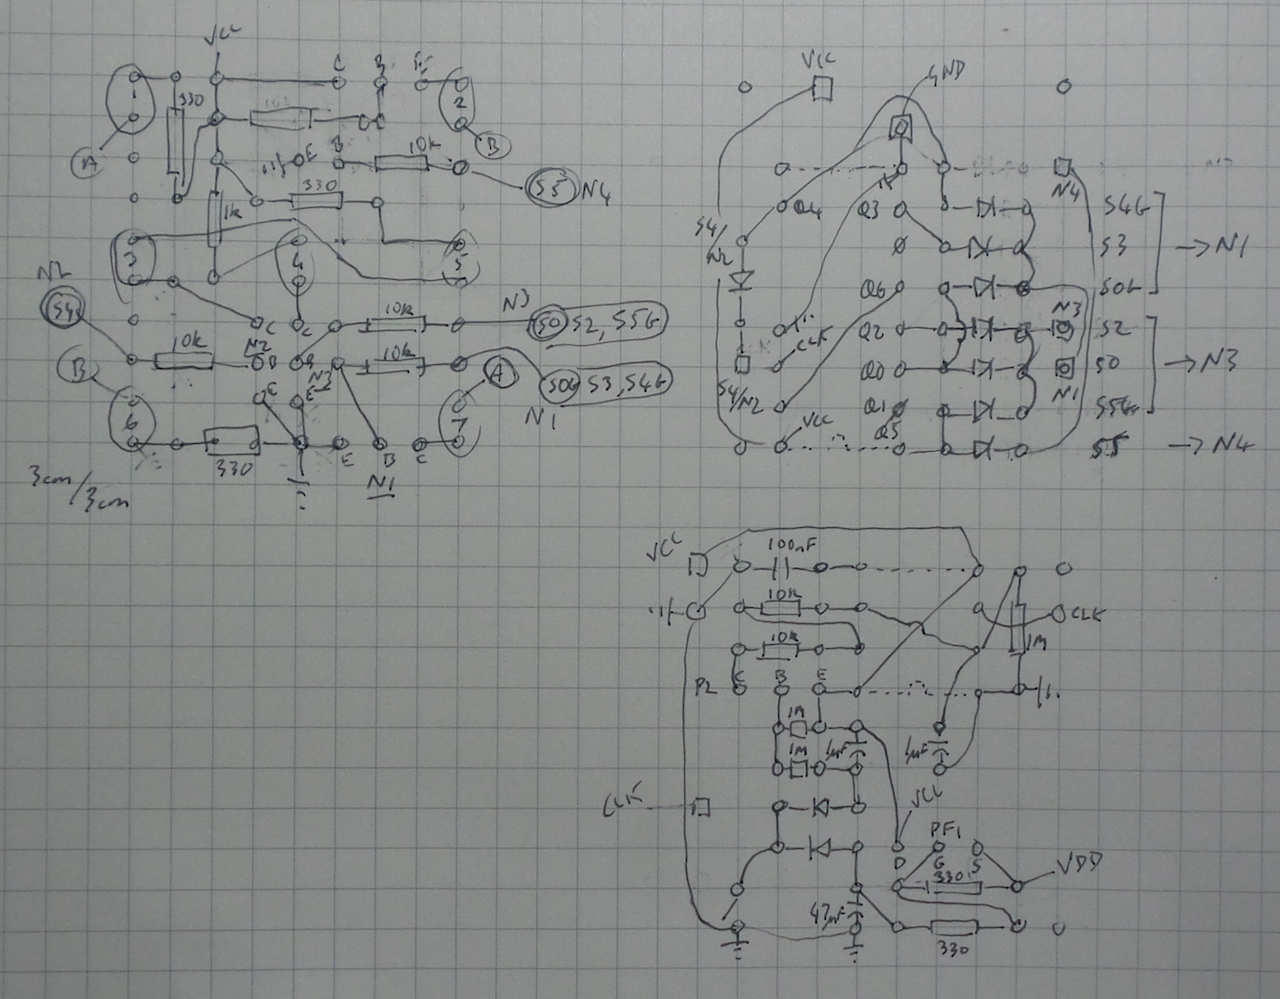 VCC
C B E
1
330
2
A
B
E
B
10k
S5 N4
330
1k
3
4
5
N2
S4
10k
N3
S0 S2, S5G
C C
10k
N2 B B
10k
A
S0G S3, S4G
N1
B
E E
6
7
330
E B C
N1
3cm/3cm
VCC
GND
N4
Q4 Q3
S4G
S4/N2
S3 → N1
Q6
S0G
N3
CLK
Q2
S2
Q0
S0 → N3
N1
S4/N2
Q1
S5G
VCC
Q5
S5 → N4
VCC
100nF
10k
CLK
10k
1M
C B E
1M
1M
1µF
1µF
CLK
VCC
PF1
D G S
330
VDD
47µF
330